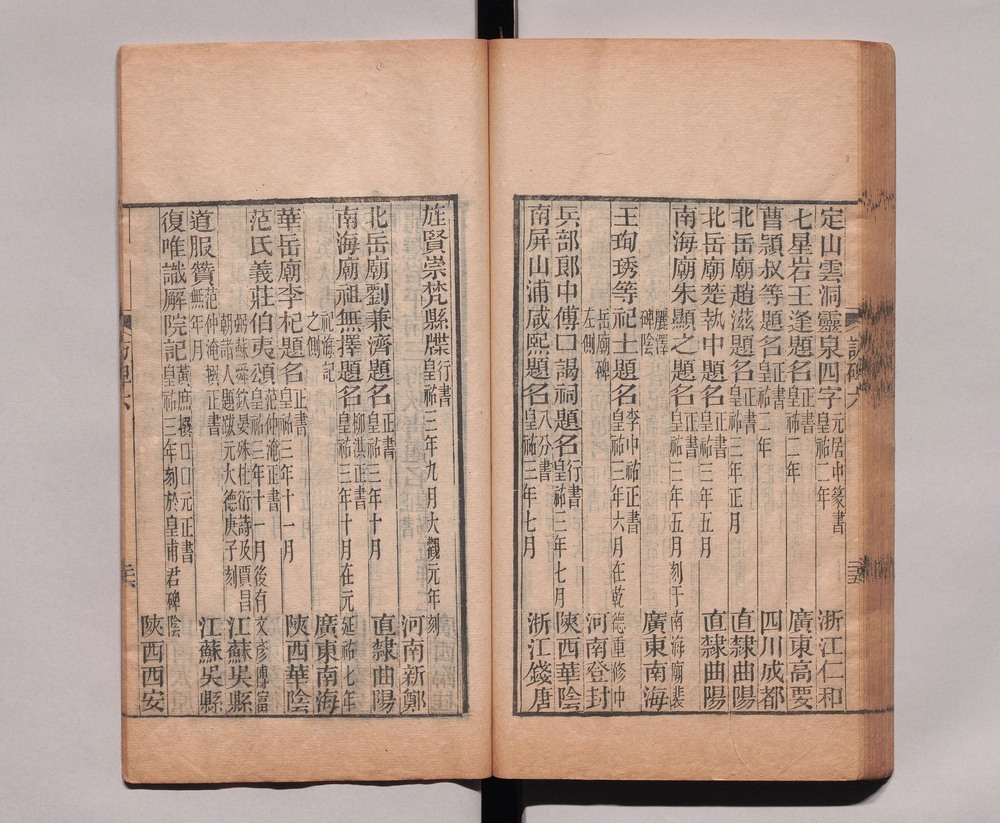 定山雲洞靈泉四字元居中篆書皇祐二年 浙江仁和
七星岩王逢題名正書皇祐二年 廣東高要
曹頴叔等題名正書皇祐二年 四川成都
北岳廟趙滋題名正書皇祐三年正月 直隸曲陽
北岳廟楚執中題名正書皇祐三年五月 直隸曲陽
南海廟朱顯之題名正書皇祐三年五月刻于南海廟裴
麗澤碑陰 廣東南海
王珣琇等祀土題名李中祐正書皇祐三年六月在乾德重修中
岳廟碑左側 河南登封
兵部郎中傅口謁祠題名行書皇祐三年七月 陝西華陰
南屏山浦咸熙題名八分書皇祐三年七月 浙江錢唐
訪碑六
旌賢崇梵縣牒行書皇祐三年九月大觀元年刻
河南新鄭
北岳廟劉兼濟題名柳淇正書皇祐三年十月 直隸曲陽
南海廟祖無擇題名正書皇祐三年十月在元延祐七年
祀海記之側 廣東南海
華岳廟李杞題名正書皇祐三年十一月 陝西華陰
范氏義莊伯夷頌范仲淹正書皇祐三年十一月後有文彥博富
弼蘇舜欽晏殊杜衍詩及賈昌朝諸人題跋元大德庚子刻 江蘇吳縣
道服贊范仲淹撰正書無年月 江蘇吳縣
復唯識廨院記黃庶撰口口元正書皇祐三年刻於皇甫君碑陰
陝西西安